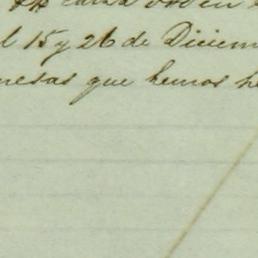 orden
l 15 y 26 de Diciem
mesas que hemos he